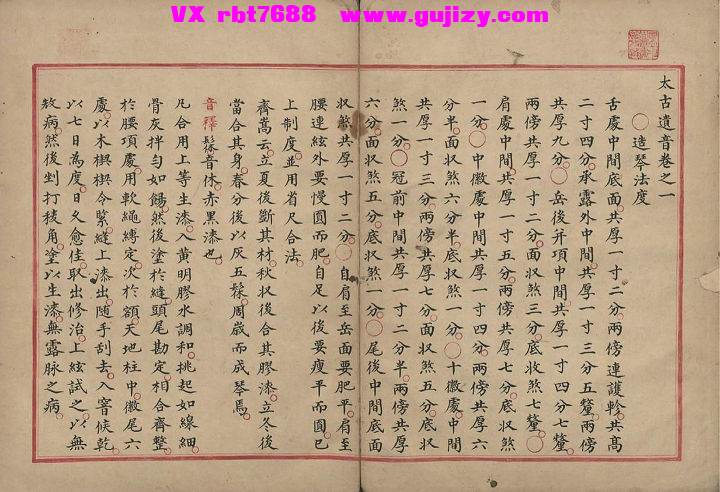 VX rbt7688 www.gujizy.com
太古遺音卷之一
〇造琴法度
舌處中間底面共厚一寸二分兩傍連護軫共高
二寸四分承露外中間共厚一寸三分五釐兩傍
共厚九分〇岳後并項中間共厚一寸四分七釐
兩傍共厚一寸二分面収煞三分底收煞七釐〇
肩處中間共厚一寸五分兩傍共厚七分底収煞
一分〇中徽處中間共厚一寸四分兩傍共厚六
分半面収煞六分半底収煞一分〇十徽處中間
共厚一寸三分兩傍共厚七分面収煞五分底収
煞一分〇冠前中間共厚一寸二分半兩傍共厚
六分面収煞五分底収煞一分〇尾後中間底面
収煞共厚一寸二分〇自肩至岳面要肥平肩至
腰連絃外要慢圓而肥自足以後要瘦平而圓已
上制度並用省尺合法
齊嵩云立夏後斷其材秋収後合其膠漆立冬後
當合其身春分後以灰五髹周歲而成琴焉
音釋髹音休赤黑漆也
凡合用上等生漆入黄明膠水調和挑起如線細
骨灰拌勻如餳然後塗於縫頭尾勘定相合齊整
於腰項處用軟繩縛定次於額天地柱中徽尾六
處以木楔楔令緊縫上漆出随手刮去入窨候乾
以七日為度日久愈佳取出修治上絃試之以無
敖病然後剉打棱角塗以生漆無露脉之病